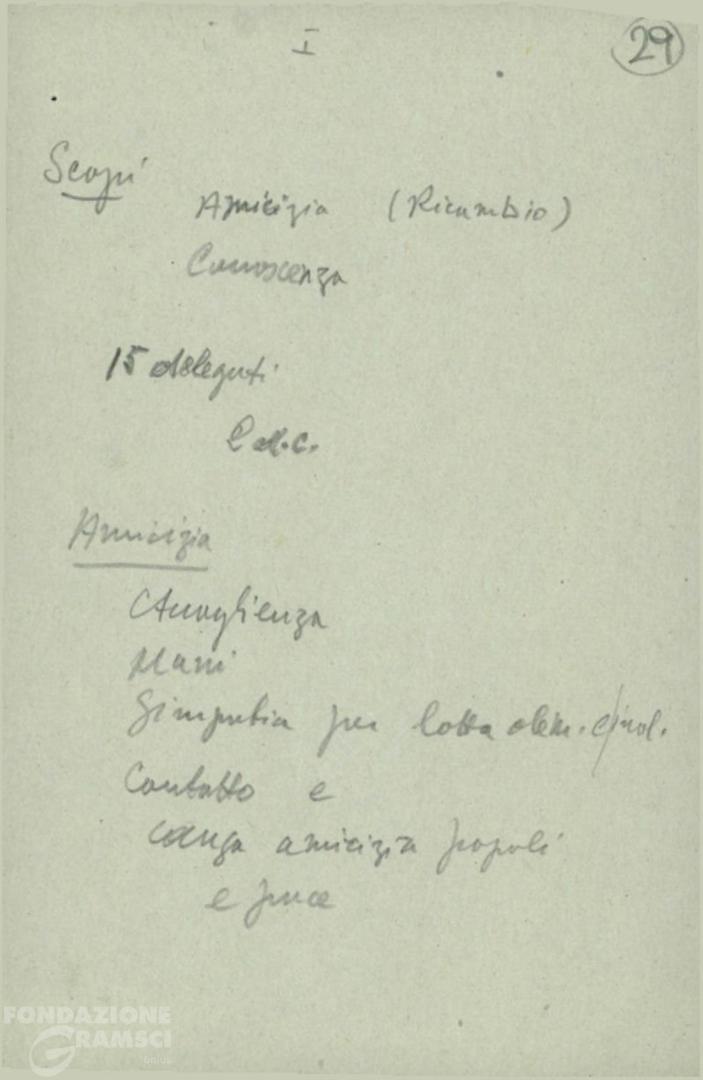 I
29
Scopi
Amicizia (Ricambio)
Conoscenza
15 delegati
Amicizia
Mani
Simpatia per lotta dem.
Contatto e
lunga amicizia popoli
e pace
FONDAZIONE
GRAMSCI
onlus